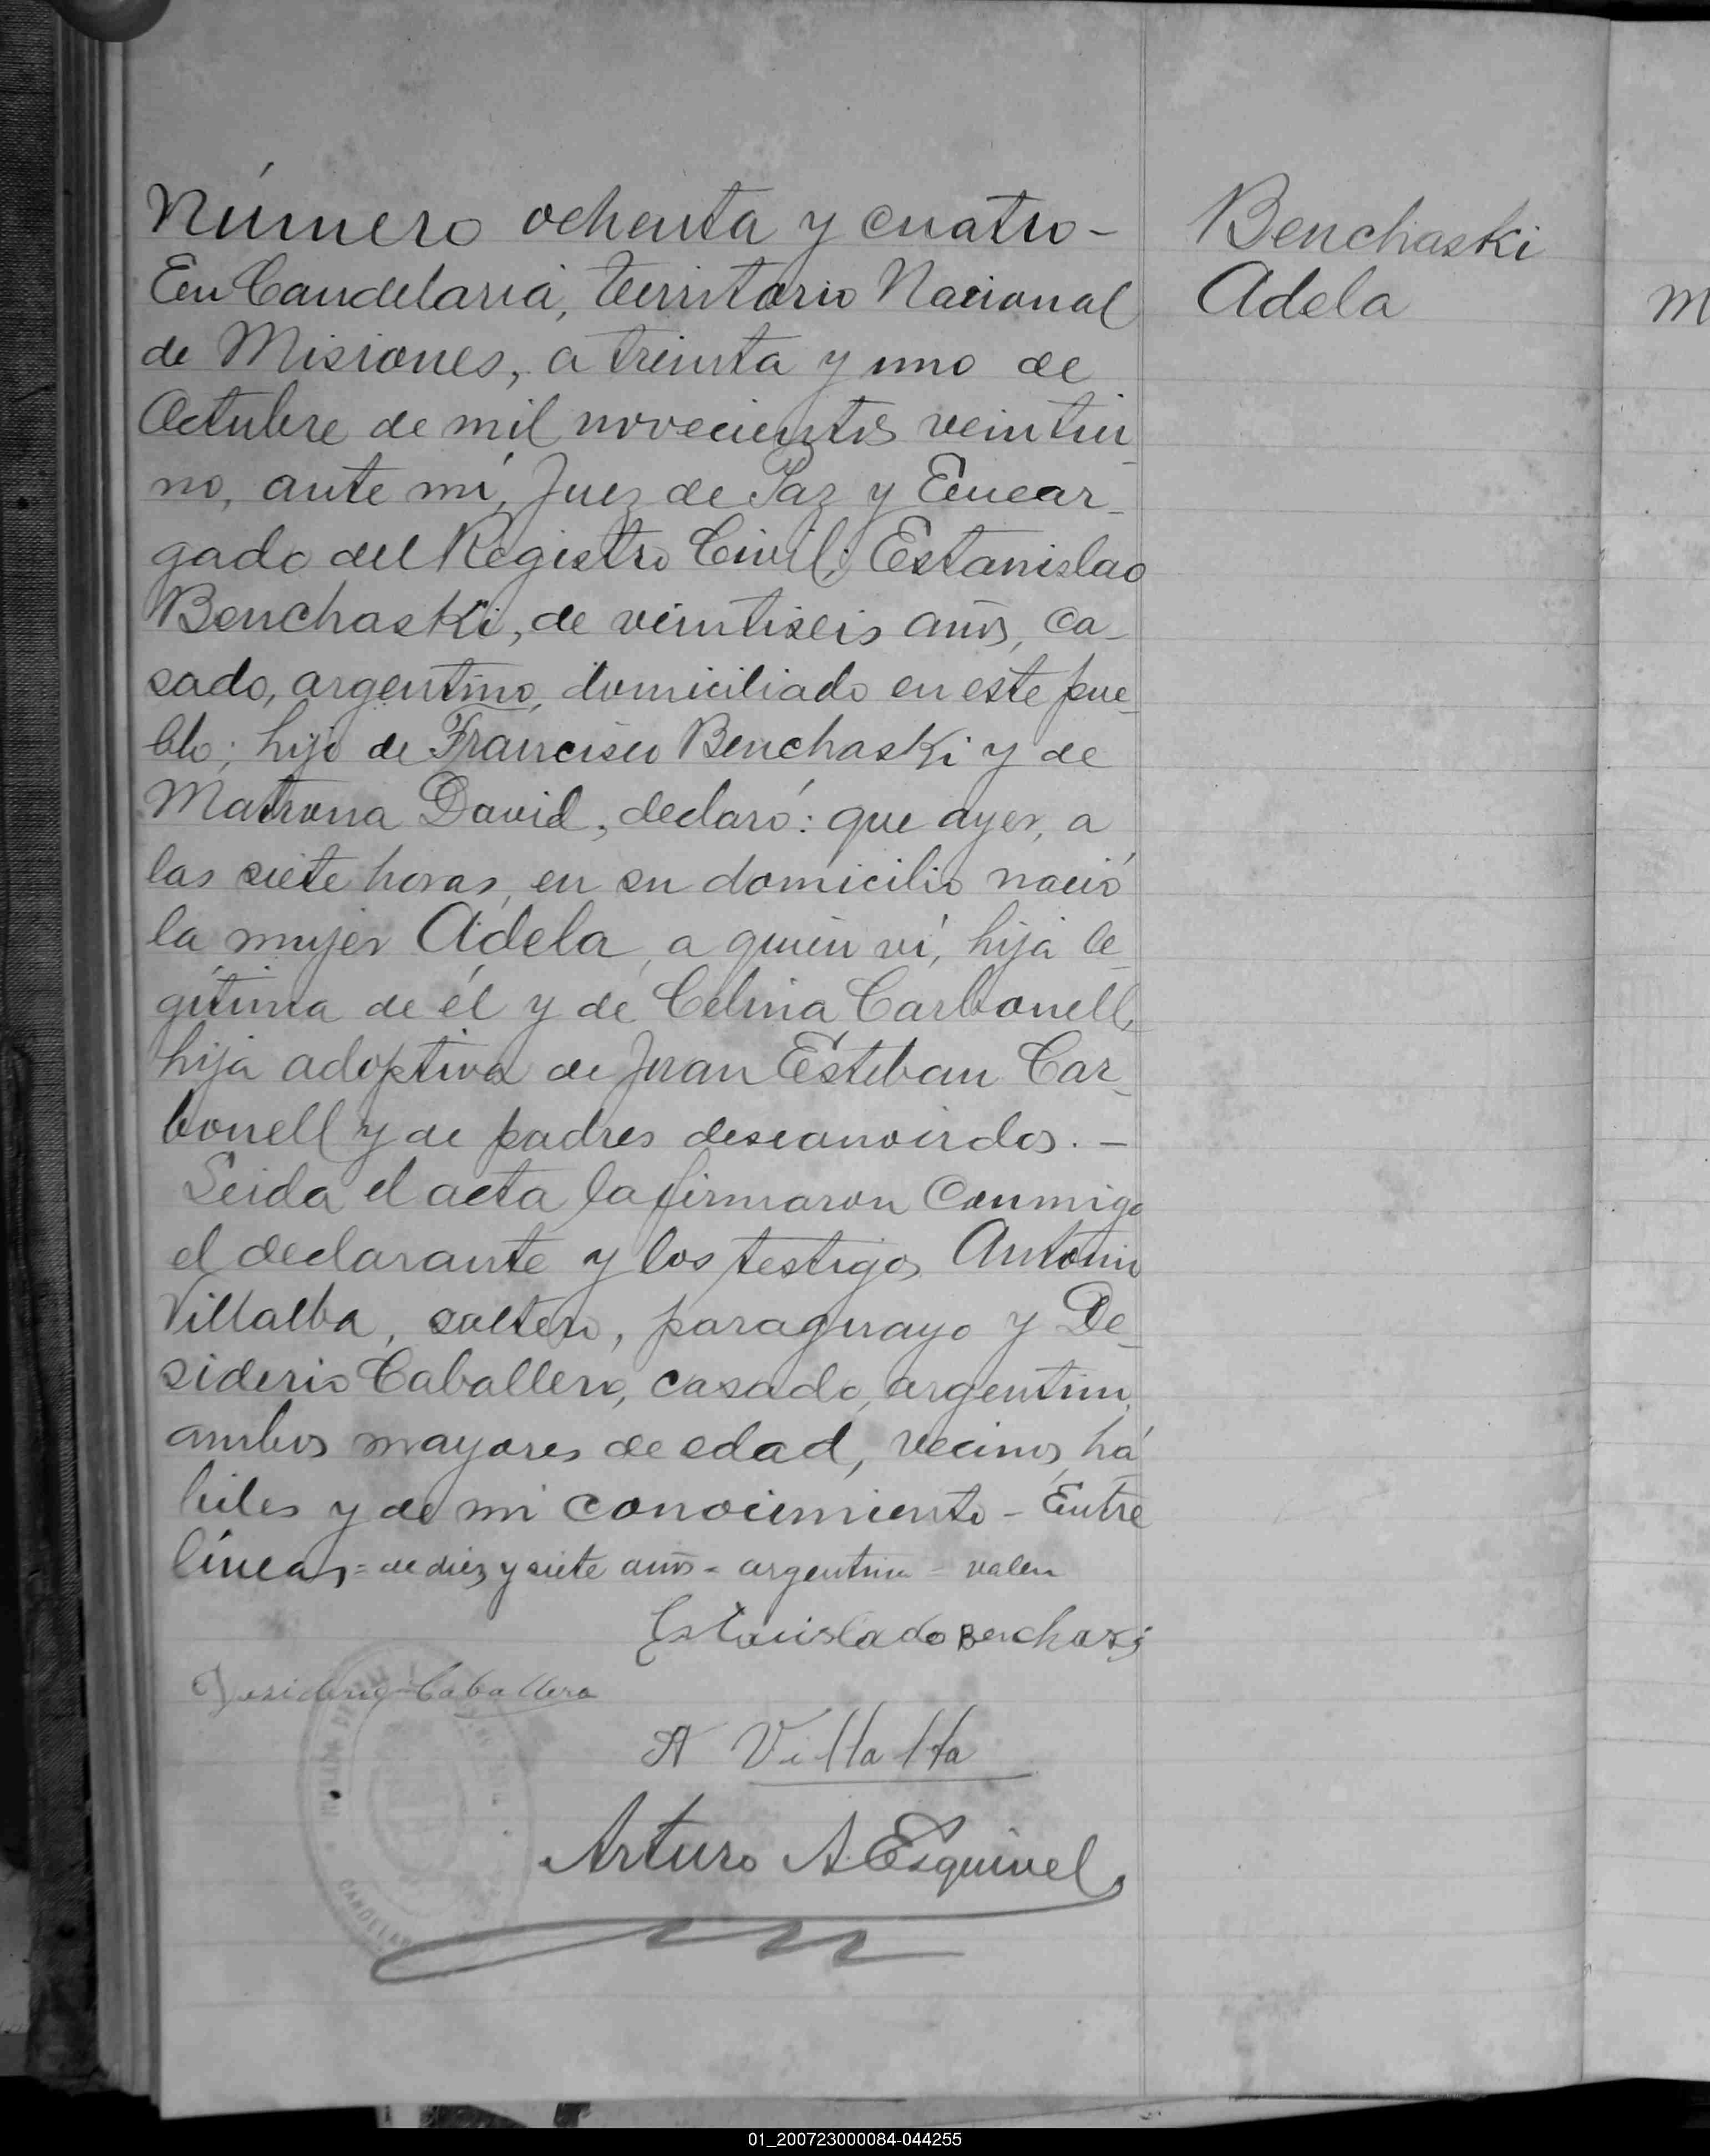 Número ochenta y cuatro -
En Candelaria, territorio Nacional
de Misiones, a treinta y uno de
Octubre de mil novecientos veintiu
no, ante mí, Juez de Paz y Encar-
gado del Registro Civil; Estanislao
Benchaski, de veintiseis años, ca-
sado, argentino, domiciliado en este pue-
blo; hijo de Francisco Benchaski y de
Matrona David, declaró: que ayer, a
las siete horas, en su domicilio nació
la mujer Adela, a quien ví, hija le-
gítima de él y de Celina Carbonell,
hija adoptiva de Juan Esteban Car-
bonell y de padres desconocidos. -
Leida el acta la firmaron conmigo
el declarante y los testigos Antonio
Villalba, soltero, paraguayo y De-
siderio Caballero, casado, argentino,
ambos mayores de edad, vecinos, há
biles y de mi conocimiento - Entre
líneas = de diez y siete años - argentina = valen
Estanislado Benchaski
Desiderio Caballero
A Villalba
Arturo A. Esquivel
Benchaski
Adela
M
CANDELAR
01_200723000084-044255